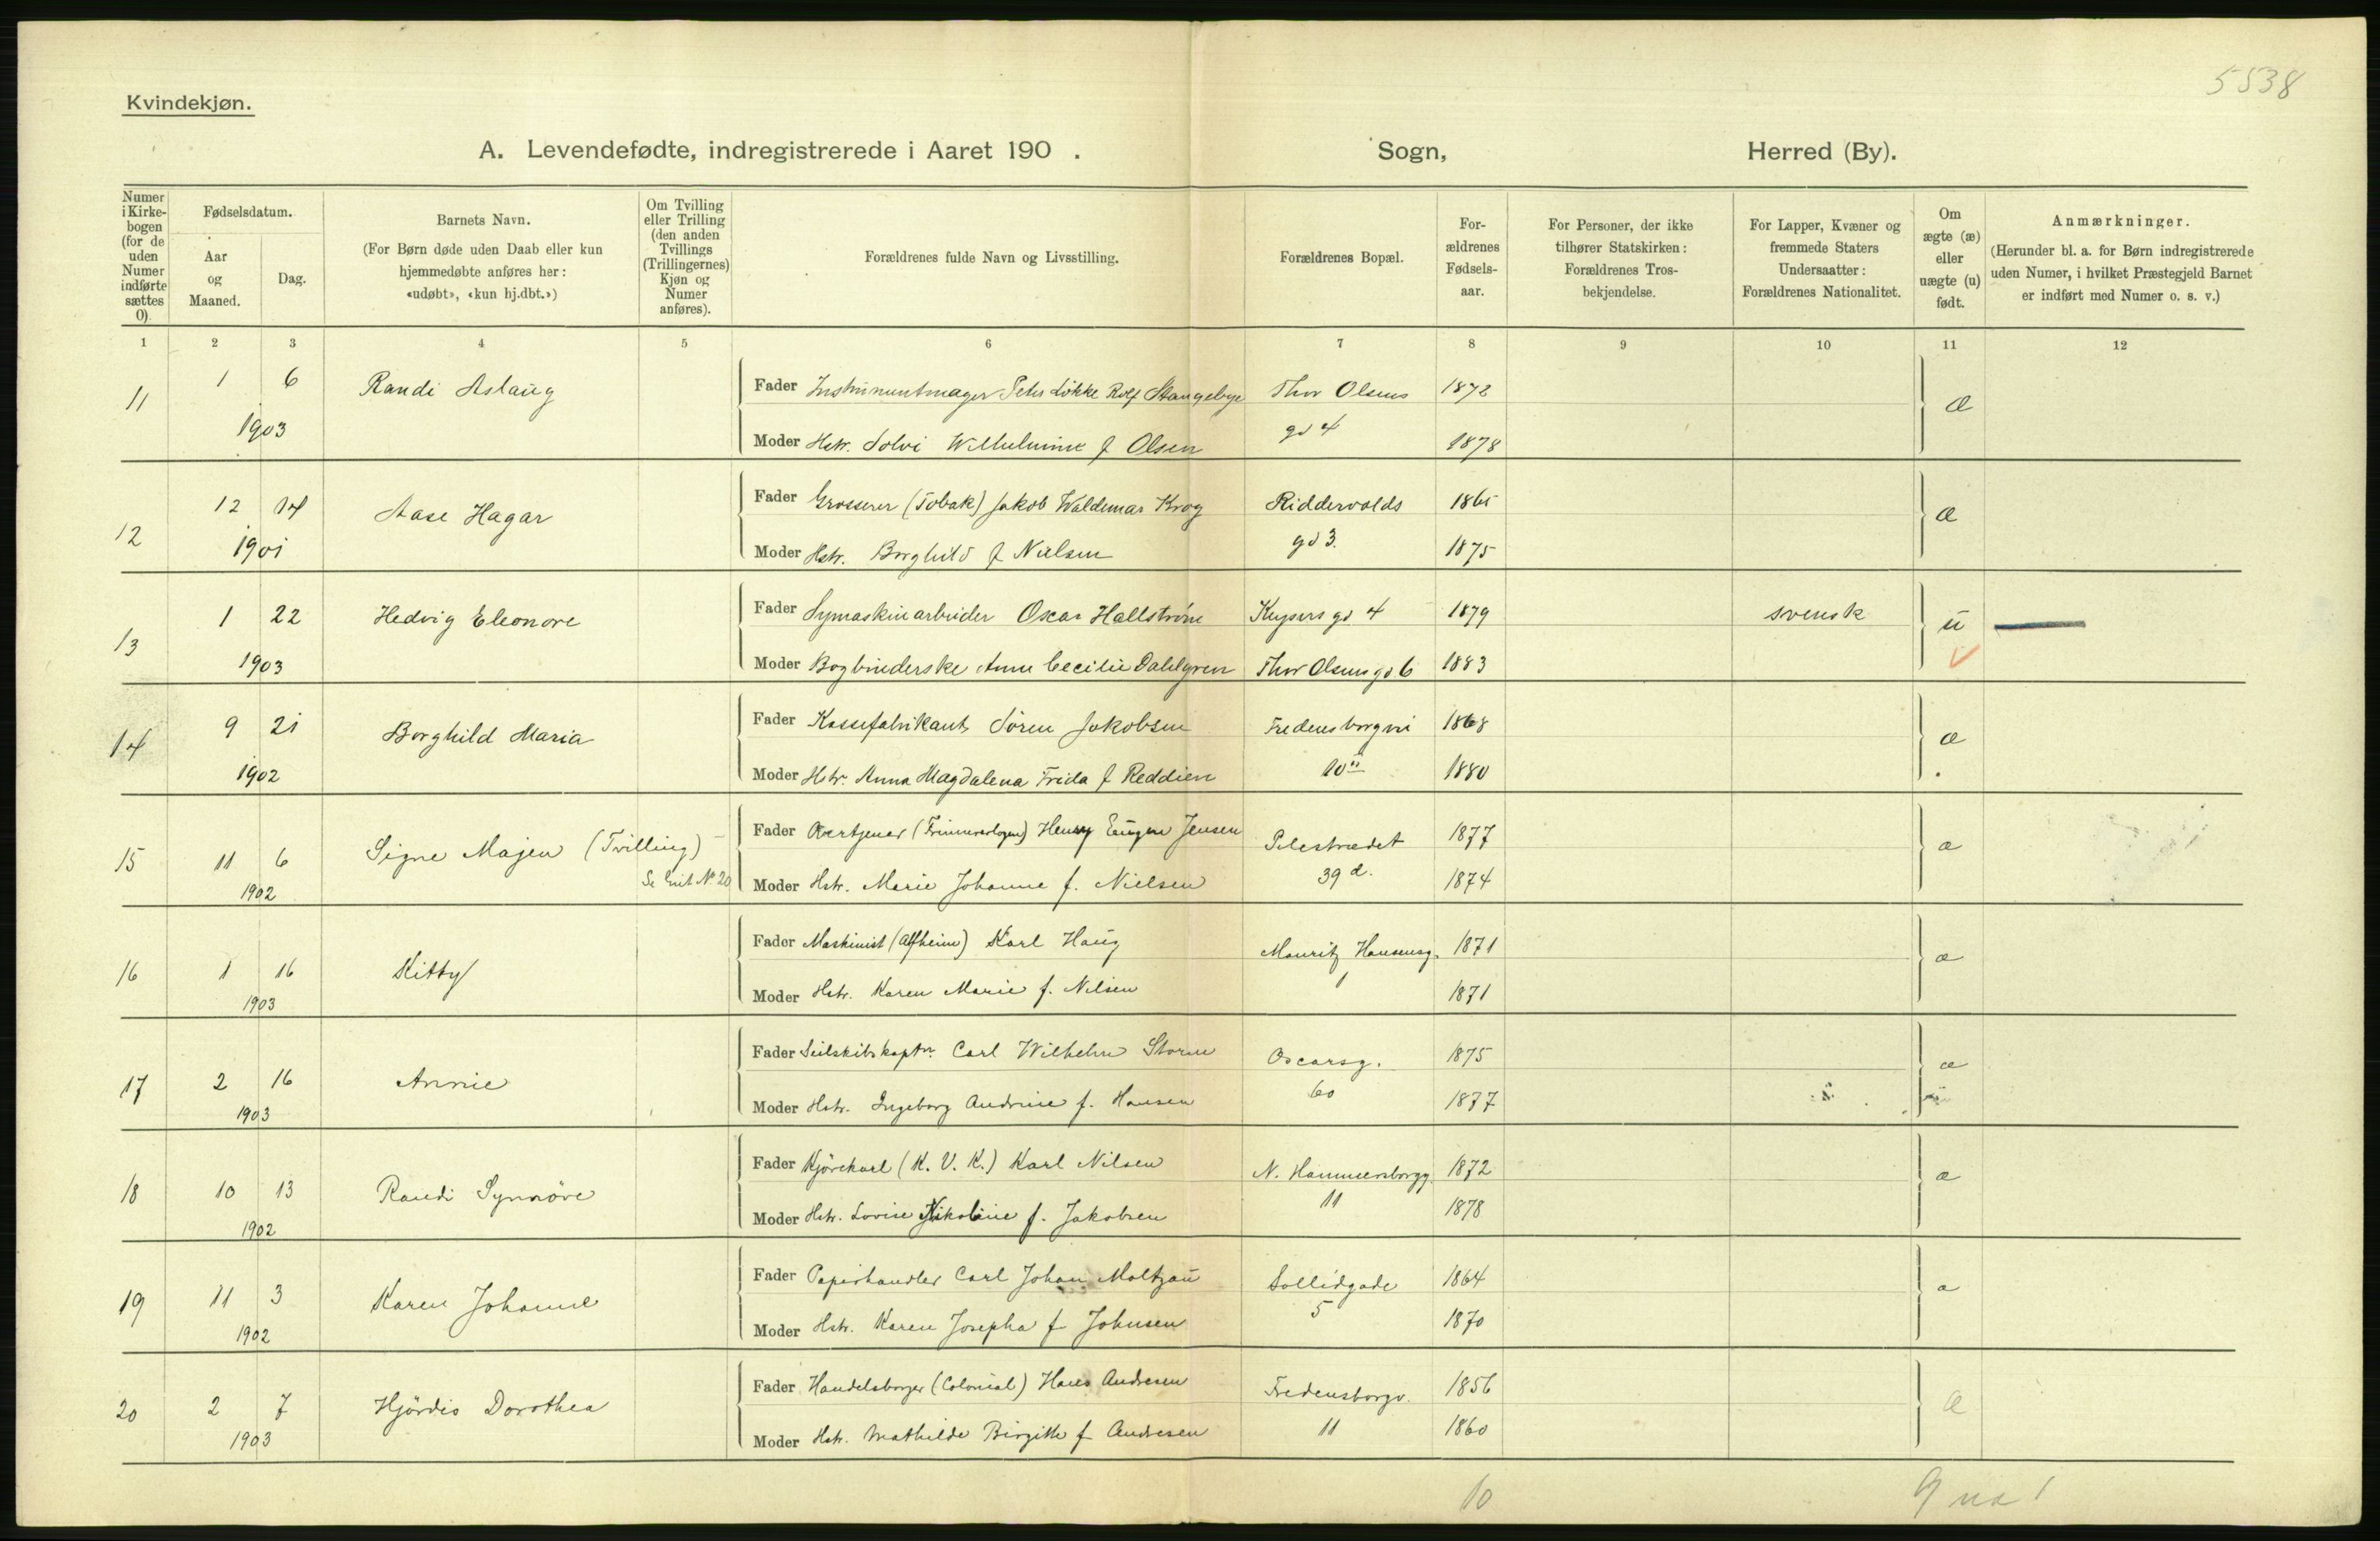 5538
Kvindekjøn.
A. Levendefødte, indregistrerede i Aaret 190 . Sogn, Herred (By).
Numer i Kirke-bogen (for de uden Numer indførte sættes 0).
Fødselsdatum.
Aar og Maaned.
Dag.
Barnets Navn.
(For Børn døde uden Daab eller kun hjemmedøbte anføres her: «udøbt», «kun hj.dbt.»)
Om Tvilling eller Trilling (den anden Tvillings (Trillingernes) Kjøn og Numer anføres).
Forældrenes fulde Navn og Livsstilling.
Forældrenes Bopæl.
For-ældrenes Fødsels-aar.
For Personer, der ikke tilhører Statskirken: Forældrenes Tros-bekjendelse.
For Lapper, Kvæner og fremmede Staters Undersaatter: Forældrenes Nationalitet.
Om ægte (æ) eller uægte (u) født.
Anmærkninger.
(Herunder bl. a. for Børn indregistrerede uden Numer, i hvilket Præstegjeld Barnet er indført med Numer o. s. v.)
1 2 3 4 5 6 7 8 9 10 11 12
11 1 6 Randi Aslaug Fader Instrumentmager Peter Løkke Rolf Stangebye Thor Olsens 1872 æ
1903 Moder Hstr. Solvi Wilhelmine f Olsen gd 4 1878
12 12 14 Aase Hagar Fader Grosserer (Tobak) Jakob Waldemar Krog Riddervolds 1865 æ
1901 Moder Hstr. Borghild f Nielsen gd 3. 1875
13 1 22 Hedvig Eleonore Fader Symaskinarbeider Oscar Hallstrøm Keysers gd 4 1879 svensk u
1903 Moder Bogbinderske Anna Cecilie Dahlgren Thor Olsens gd 6 1883
14 9 21 Borghild Maria Fader Kassefabrikant Søren Jakobsen Fredensborgvei 1868 æ
1902 Moder Hstr. Anna Magdalena Frida f Reddien 10 1880
15 11 6 Signe Majen (Tvilling) Fader Overtjener (Frimurerlogen) Henry Eugen Jensen Pilestrædet 1877 æ
1902 Se Gut No 20 Moder Hstr. Marie Johanne f. Nielsen 39 d. 1874
16 1 16 Kitty Fader Maskinist (Alfheim) Karl Haug Mauritz Hansensg. 1871 æ
1903 Moder Hstr. Karen Marie f. Nilsen 1 1871
17 2 16 Annie Fader Seilskibskaptn. Carl Wilhelm Storm Oscarsg. 1875 æ
1903 Moder Hstr. Ingeborg Andrine f. Hansen 60 1877
18 10 13 Randi Synnøve Fader Kjørekarl (K. V. K.) Karl Nilsen N. Hammersborgg. 1872 æ
1902 Moder Hstr. Lovise Nikoline f. Jakobsen 11 1878
19 11 3 Karen Johanne Fader Papirhandler Carl Johan Moltzau Sollidgade 1864 æ
1902 Moder Hstr. Karen Josepha f Johnsen 5 1870
20 2 7 Hjørdis Dorothea Fader Handelsborger (Colonial) Hans Andresen Fredensborgv. 1856 æ
1903 Moder Hstr. Mathilde Birgitte f Andresen 11 1860
10 9 1